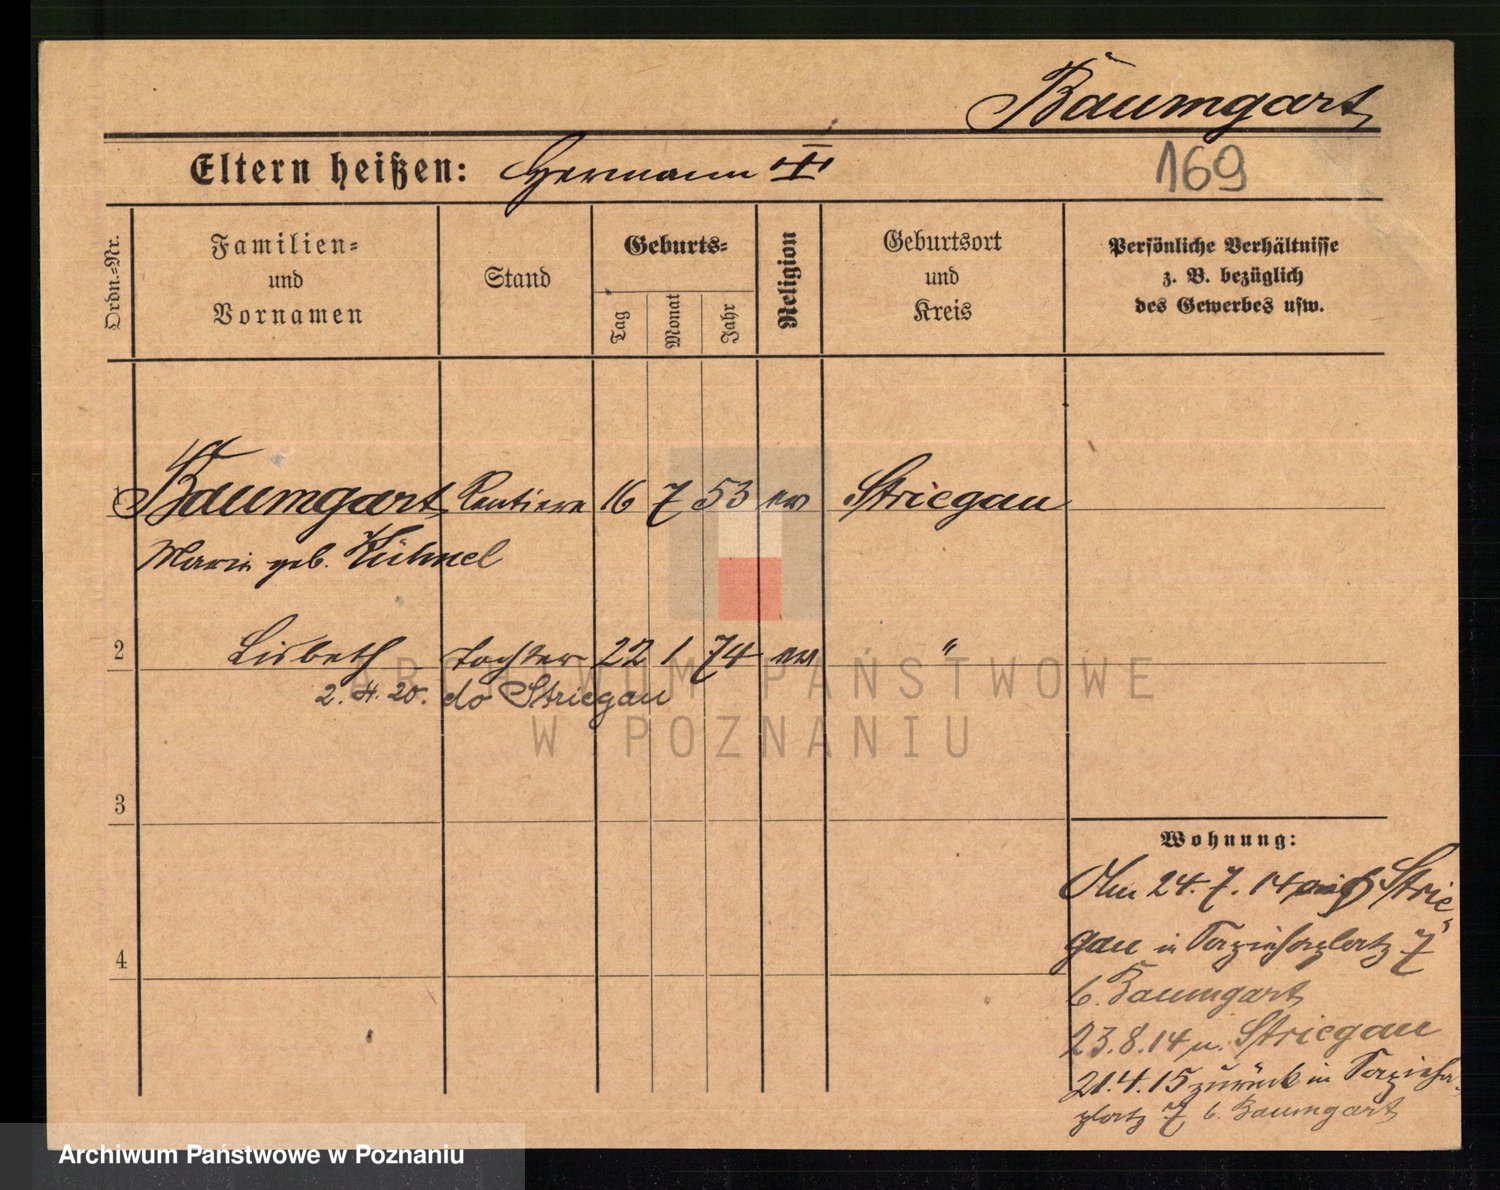 Baumgart
Eltern heißen: Hermann
169
Ordn.=Nr.
Familien=
und
Vornamen
Stand
Geburts=
Tag
Monat
Jahr
Religion
Geburtsort
und
Kreis
Persönliche Verhältnisse
z. B. bezüglich
des Gewerbes usw.
1 Baumgart Rentiere 16 7 53 ev Striegau
Marie geb. Kühnel
2 Lisbeth Tochter 22 1 74 ev "
2.4.20. do Striegau
3
4
Wohnung:
Am 24.7.14 aus Strie-
gau in 7
b. Baumgart
23.8.14 n. Striegau
21.4.15 zurück in
platz 7 b. Baumgart
ARCHIWUM PAŃSTWOWE
W POZNANIU
Archiwum Państwowe w Poznaniu